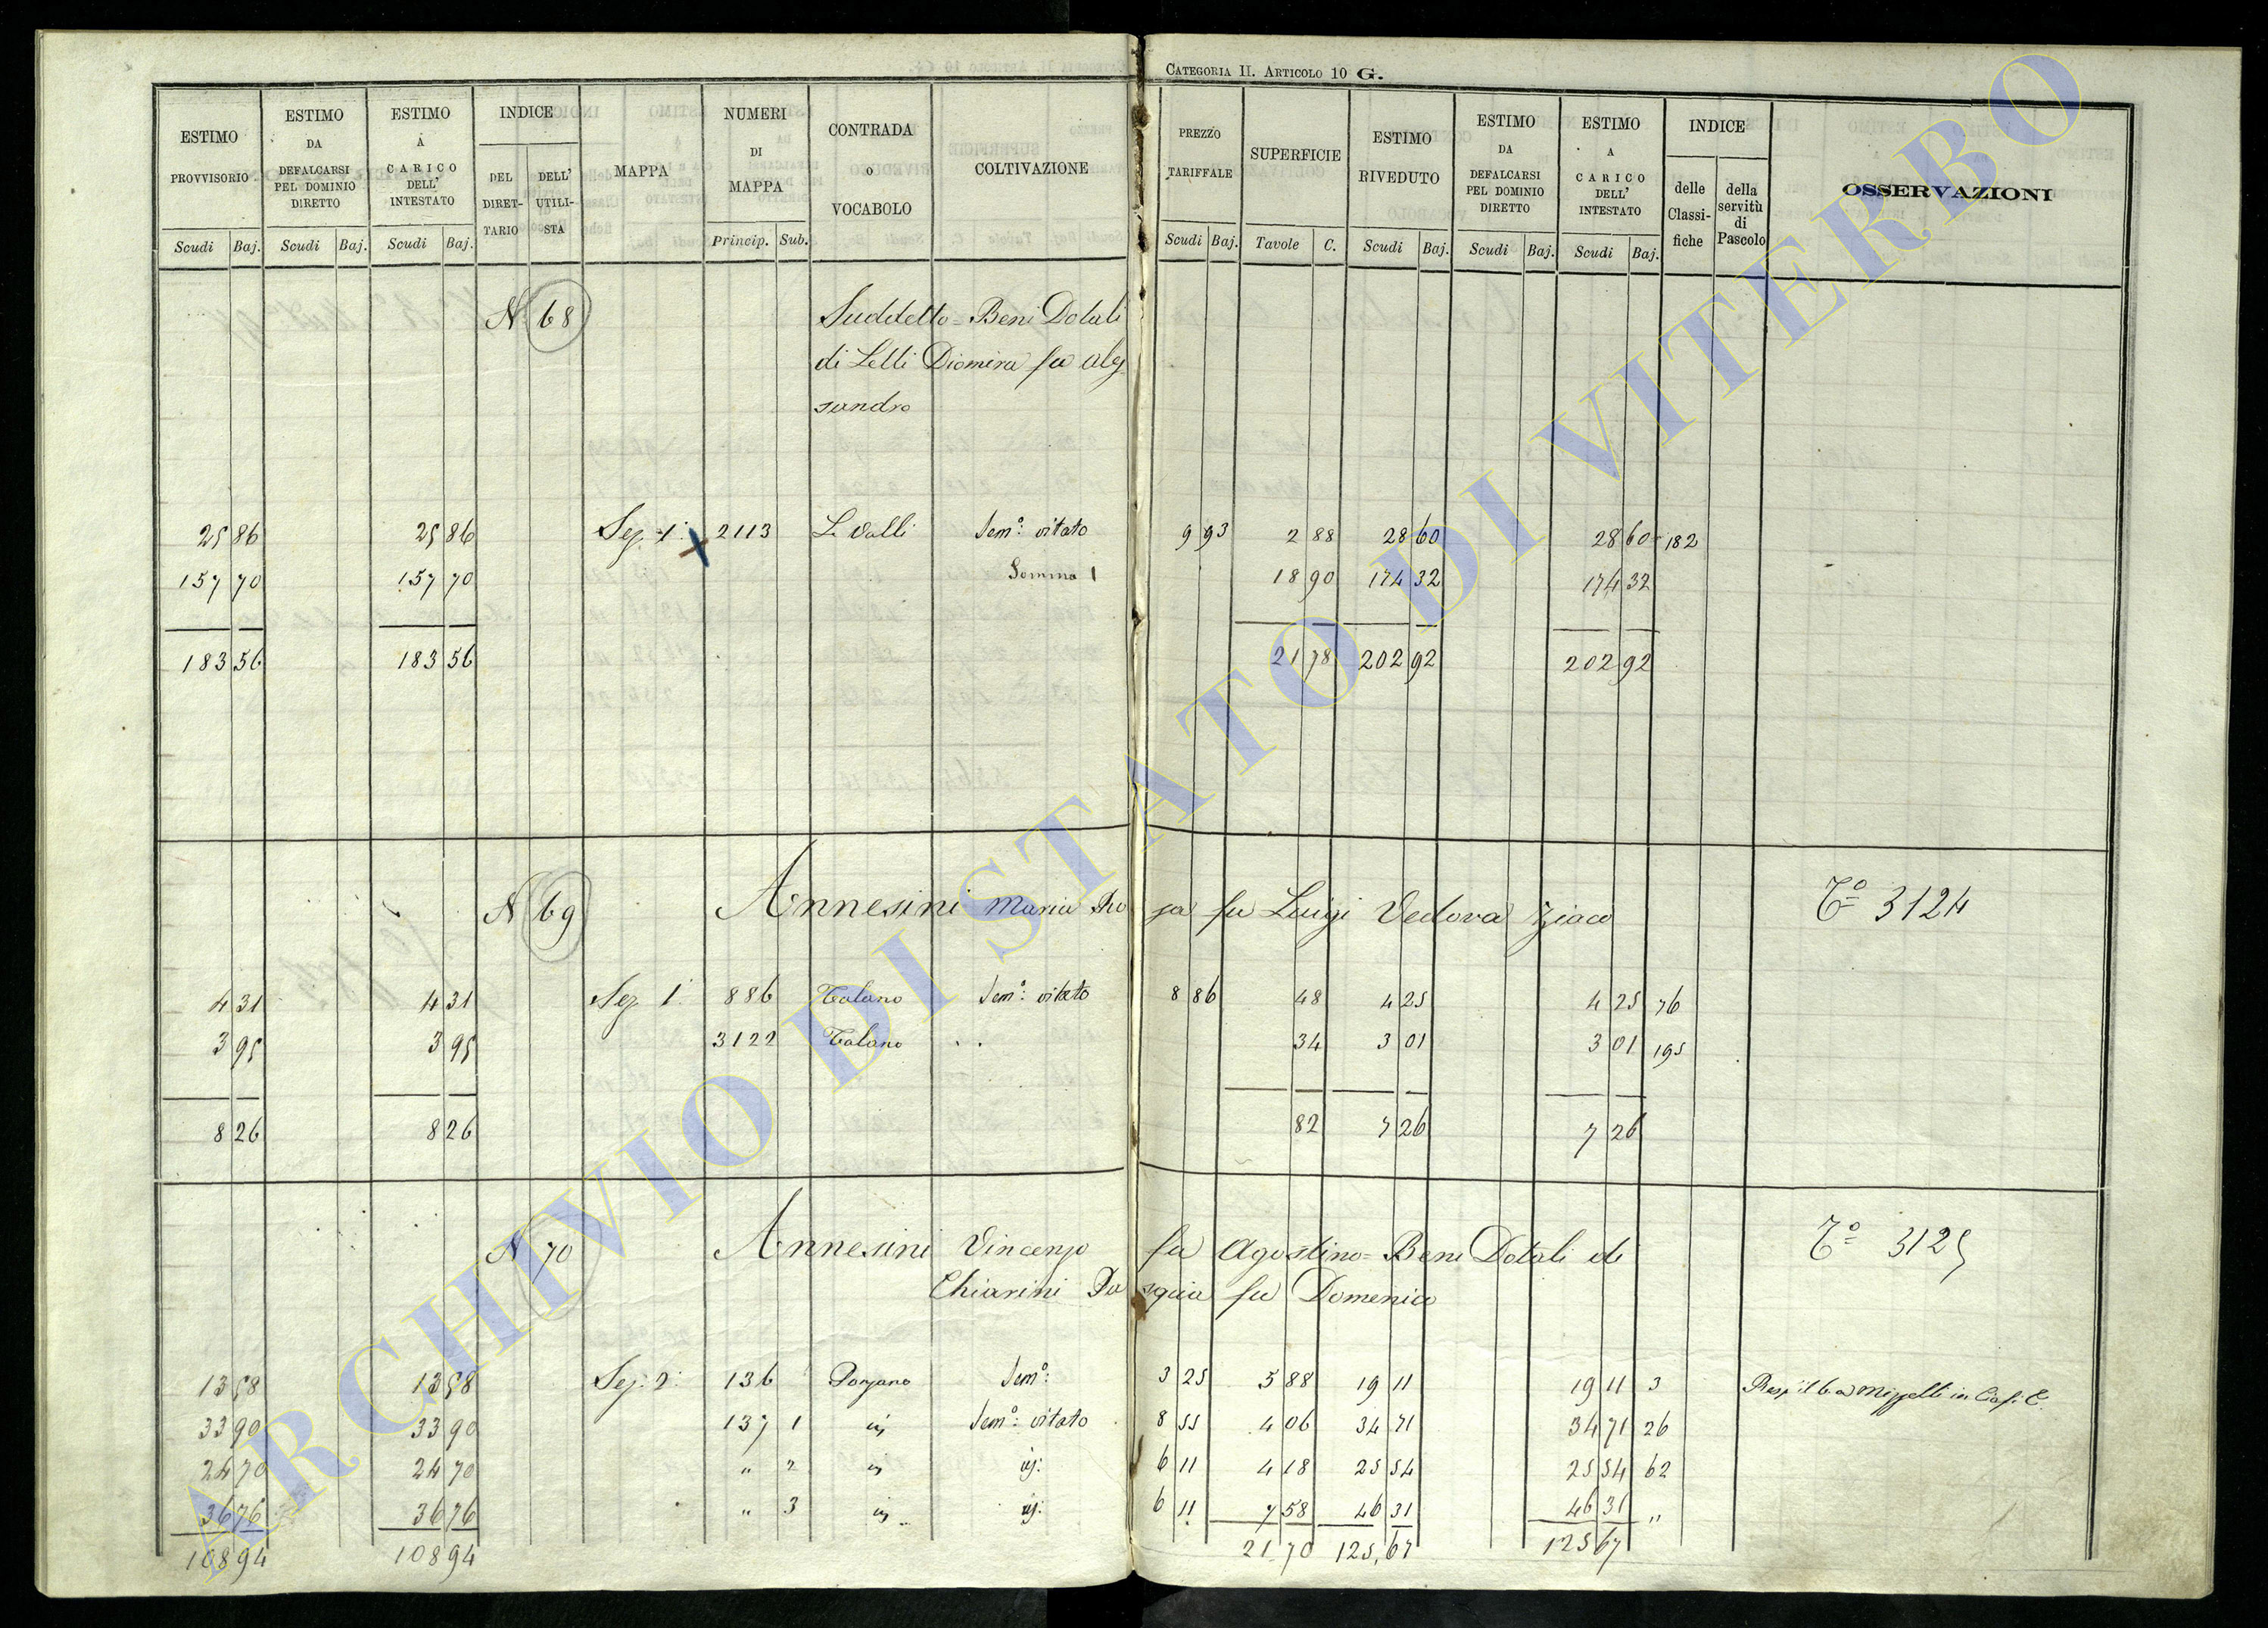 CATEGORIA II. ARTICOLO 10 G.
ESTIMO PROVVISORIO Scudi Baj.
ESTIMO DA DEFALCARSI PEL DOMINIO DIRETTO Scudi Baj.
ESTIMO A CARICO DELL' INTESTATO Scudi Baj.
INDICE DEL DIRET-TARIO DELL' UTILI-STA
MAPPA
NUMERI DI MAPPA Princip. Sub.
CONTRADA o VOCABOLO
COLTIVAZIONE
PREZZO TARIFFALE Scudi Baj.
SUPERFICIE Tavole C.
ESTIMO RIVEDUTO Scudi Baj.
ESTIMO DA DEFALCARSI PEL DOMINIO DIRETTO Scudi Baj.
ESTIMO A CARICO DELL' INTESTATO Scudi Baj.
INDICE delle Classi-fiche della servitù di Pascolo
OSSERVAZIONI
N 68 Suddetto = Beni Dotali
di Lelli Diomira fu Ales
sandro
25 86 25 86 Sez. 1 2113 Le Valli Sem.o vitato 9 93 2 88 28 60 28 60 182
157 70 157 70 Somma 1 18 90 174 32 174 32
183 56 183 56 21 78 202 92 202 92
N 69 Annesini Maria Ro sa fu Luigi Vedova Ziaco To 3124
4 31 4 31 Sez 1 886 Talano Sem.o vitato 8 86 48 4 25 4 25 76
3 95 3 95 3122 Talano . . 34 3 01 3 01 195
8 26 8 26 82 7 26 7 26
N 70 Annesini Vincenzo fu Agostino = Beni Dotali di To 3125
Chiarini Pa squa fu Domenico
13 58 13 58 Sez. 2 136 Porzano Sem.o 3 25 5 88 19 11 19 11 3
33 90 33 90 137 1 id Sem.o vitato 8 55 4 06 34 71 34 71 26
24 70 24 70 " 2 id id. 6 11 4 18 25 54 25 54 62
36 76 36 76 " 3 id id. 6 11 7 58 46 31 46 31 "
108 94 108 94 21 70 125,67 125 67
ARCHIVIO DI STATO DI VITERBO